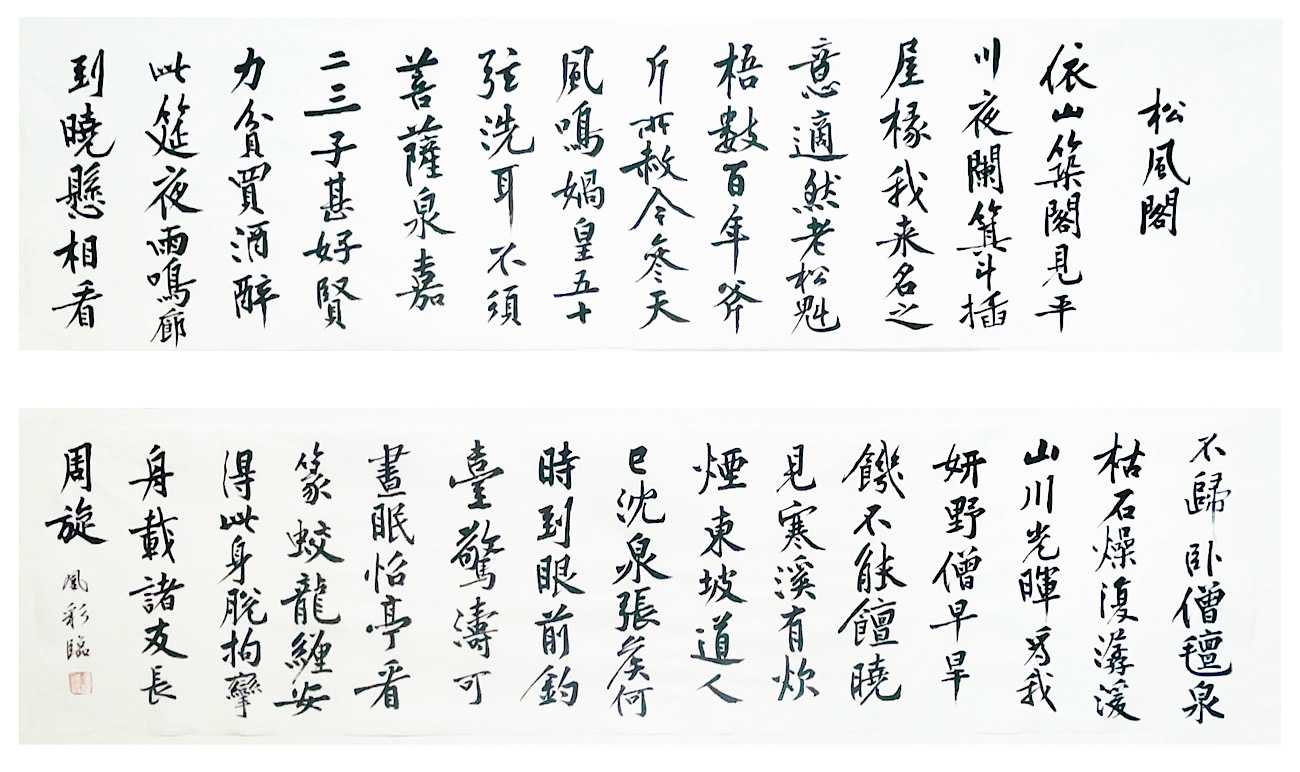 松風閣
依山築閣見平
川夜闌箕斗插
屋椽我来名之
意適然老松魁
梧數百年斧
斤所赦今參天
風鳴媧皇五十
弦洗耳不須
菩薩泉嘉
二三子甚好賢
力貧買酒醉
此筵夜雨鳴廊
到曉懸相看
不歸卧僧氊泉
枯石燥復潺湲
山川光暉為我
妍野僧早旱
饑不能饘曉
見寒溪有炊
煙東坡道人
已沈泉張矦何
時到眼前釣
臺驚濤可
晝眠怡亭看
篆蛟龍纏安
得此身脫拘攣
舟載諸友長
周旋
風彩臨